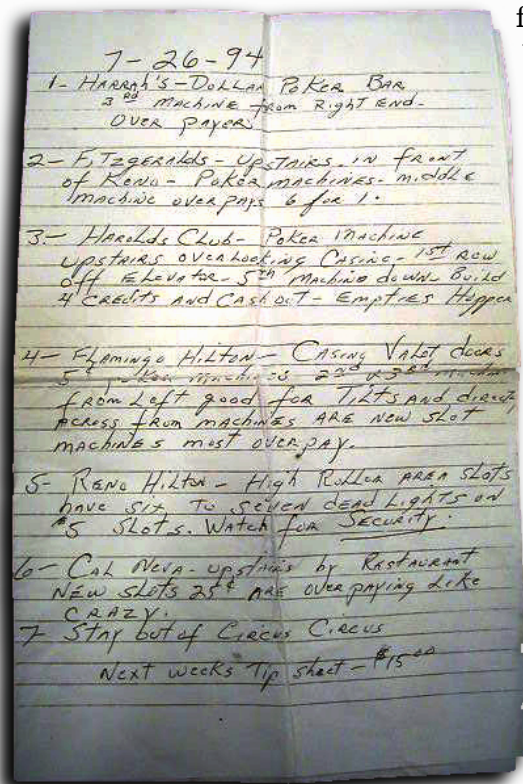 7-26-94
1- HARRAH'S-DOLLAR POKER BAR
3RD MACHINE from Right END-
OVER PAYER
2- FITZGERALDS- UPSTAIRS. IN FRONT
of KENO- POKER MACHINES- MIDDLE
MACHINE OVERPAYS 6 for 1.
3- HAROLDS CLUB- POKER MACHINE
UPSTAIRS OVERLOOKING CASINO- 1ST ROW
off ELEVATOR- 5TH MACHINE DOWN. BUILD
4 CREDITS AND CASH OUT- EMPTIES HOPPER
4- FLAMINGO HILTON- CASINO VALET DOORS
5¢ 2ND & 3RD
from LEFT good for TILTS AND
ACROSS from MACHINES ARE NEW SLOT
MACHINES MOST OVERPAY.
5- RENO HILTON- HIGH ROLLER AREA SLOTS
have six to seven DEAD LIGHTS ON
$5 SLOTS. WATCH for SECURITY.
6- CAL NEVA- UPSTAIRS by RESTAURANT
NEW SLOTS 25¢ ARE OVERPAYING LIKE
CRAZY.
7 STAY OUT of CIRCUS CIRCUS
NEXT WEEKS TIP SHEET- $15.00
f